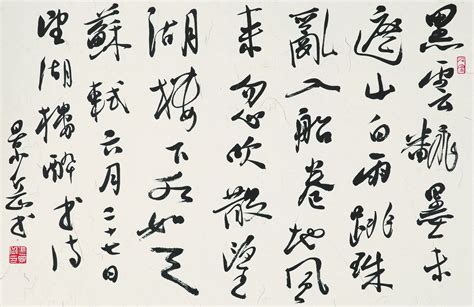 黑雲翻墨未
遮山白雨跳珠
亂入船卷地風
来忽吹散望
湖樓下水如天
蘇軾六月二十七日
望湖樓醉书诗
景书